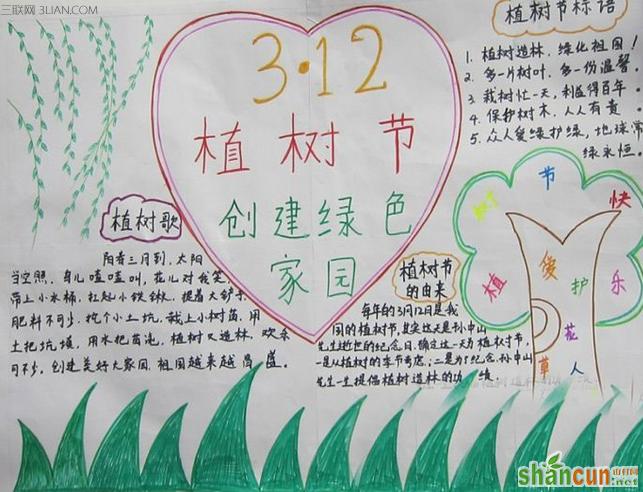 三联网 3LIAN.COM
3·12
植树节
创建绿色
家园
植树节标语
1. 植树造林，绿化祖国！
2. 多一片树叶，多一份温馨。
3. 栽树忙一天，利益得百年。
4. 保护树木，人人有责
5. 众人爱绿护绿，地球常
绿永恒。
植树歌
阳春三月到，太阳
当空照，鸟儿喳喳叫，花儿对我笑，
带上小水桶，扛起小铁锹，提着大铲子，
肥料不可少，挖个小土坑，栽上小树苗，用
土把坑填，用水把苗浇，植树又造林，欢乐
可不少，创建美好大家园，祖国越来越昌盛。
植树节
的由来
每年的3月12日是我
国的植树节，其实这天是孙中山
先生逝世的纪念日。确定这一天为植树节，
一是从植树的季节考虑；二是为了纪念孙中山
先生一生提倡植树造林的功绩
植树节快乐
爱护花草人
shancun
山村网
.net